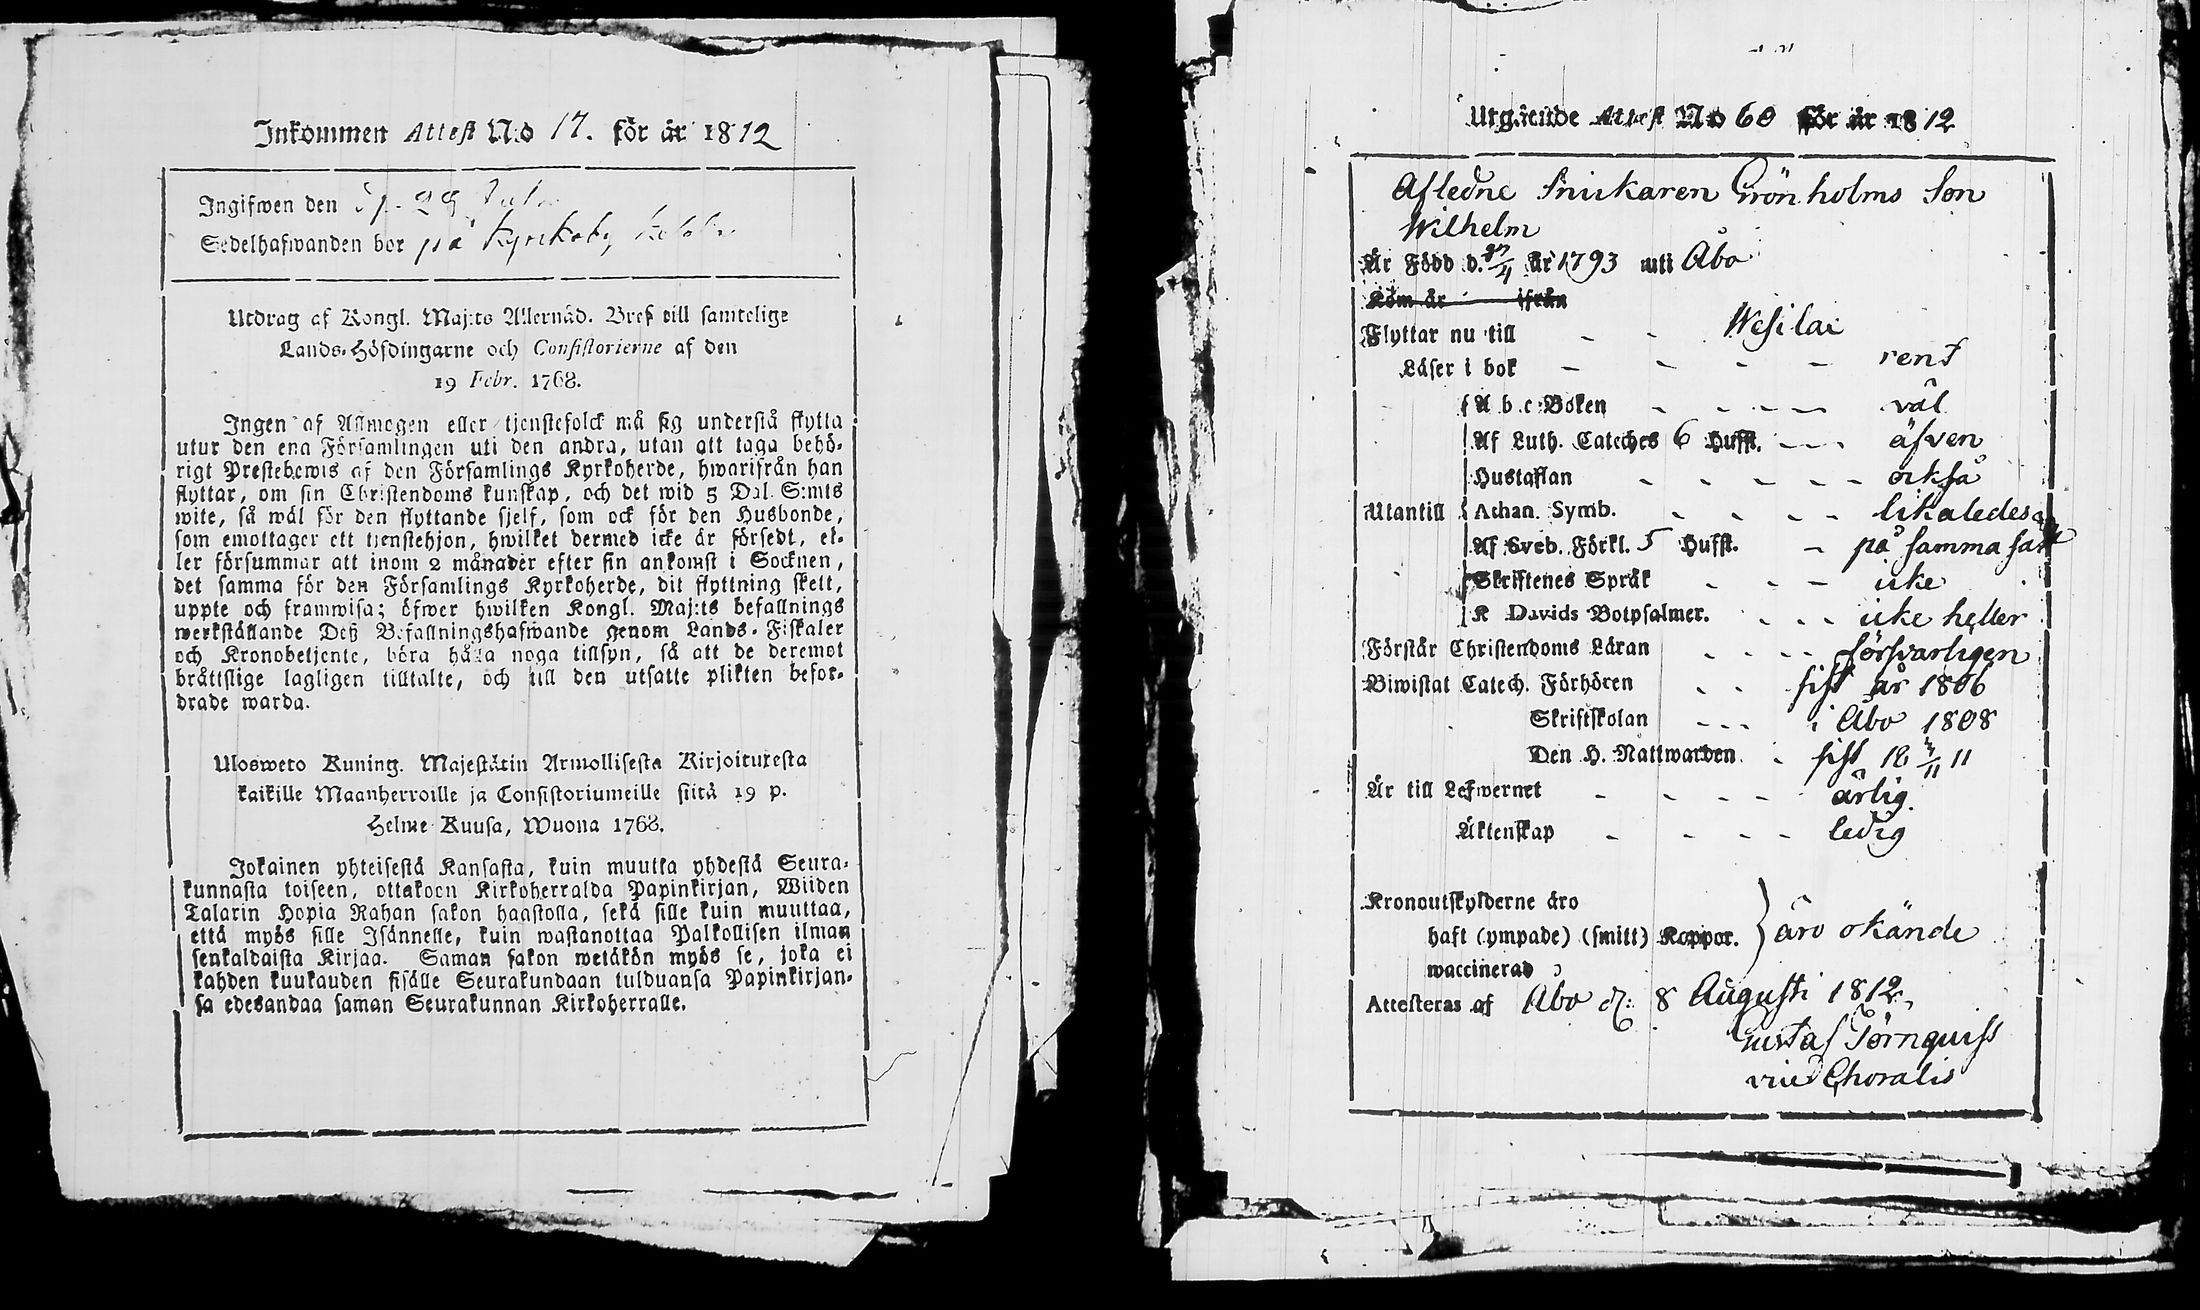 Inkommen Attest N:o 17. för år 1812
Ingifwen den 29
Sedelhafwanden bor på Kyrckoby
Utdrag af Kongl. Maj:ts Allernåd. Bref till samtelige
Lands-Höfdingarne och Consistorierne af den
19 Febr. 1768.
Ingen af Allmogen eller tjenstefolck må sig understå flytta
utur den ena Församlingen uti den andra, utan att taga behö-
rigt Prestebewis af den Församlings Kyrkoherde, hwarifrån han
flyttar, om sin Christendoms kunskap, och det wid 5 Dal. S:mts
wite, så wäl för den flyttande sjelf, som ock för den Husbonde,
som emottager ett tjenstehjon, hwilket dermed icke är försedt, el-
ler försummar att inom 2 månader efter sin ankomst i Socknen,
det samma för den Församlings Kyrkoherde, dit flyttning skett,
uppte och framwisa; öfwer hwilken Kongl. Maj:ts befallnings
werkställande Deß Befallningshafwande genom Lands-Fiskaler
och Kronobetjente, böra hålla noga tillsyn, så att de deremot
bråttslige lagligen tilltalte, och till den utsatte plikten befor-
drade warda.
Ulosweto Kuning. Majestätin Armollisesta Kirjoituxesta
kaikille Maanherroille ja Consistoriumeille siitä 19 p.
Helme-Kuusa, Wuona 1768.
Jokainen yhteisestä Kansasta, kuin muutta yhdestä Seura-
kunnasta toiseen, ottakoon Kirkoherralda Papinkirjan, Wiiden
Talarin Hopia Rahan sakon haastolla, sekä sille kuin muuttaa,
että myös sille Isännelle, kuin wastanottaa Palkollisen ilman
senkaldaista Kirjaa. Saman sakon wetäkön myös se, joka ei
kahden kuukauden sisälle Seurakundaan tulduansa Papinkirjan-
sa edesandaa saman Seurakunnan Kirkoherralle.
Utgående Attest No 60 för år 1812
Afledne Snickaren Grönholms Son
Wilhelm
Är Född d. år 1793 uti Åbo
Kom år ifrån
Flyttar nu till - - Wesilax
Läser i bok - - - - rent
A b c-Boken - - - - väl
Af Luth. Cateches 6 Hufst. - - äfven
Hustaflan - - - - - också
Utantill Athan. Symb. - - - - likaledes
Af Sveb. Förkl. 5 Hufst. - på samma sätt
Skriftenes Språk - - - icke
K Davids Botpsalmer. - - - icke heller
Förstår Christendoms Läran - - - - försvarligen
Biwistat Catech. Förhören - - sist år 1806
Skriftskolan - - - i Åbo 1808
Den H. Nattwarden - sist 18 3/11 11
Är till Lefwernet - - - - ärlig.
Äktenskap - - - - ledig
Kronoutskylderne äro
haft (ympade) (smitt) Koppor. } äro okände
waccinerad
Attesteras af Åbo d: 8 Augusti 1812
Gustaf Törnquist
vice Choralis